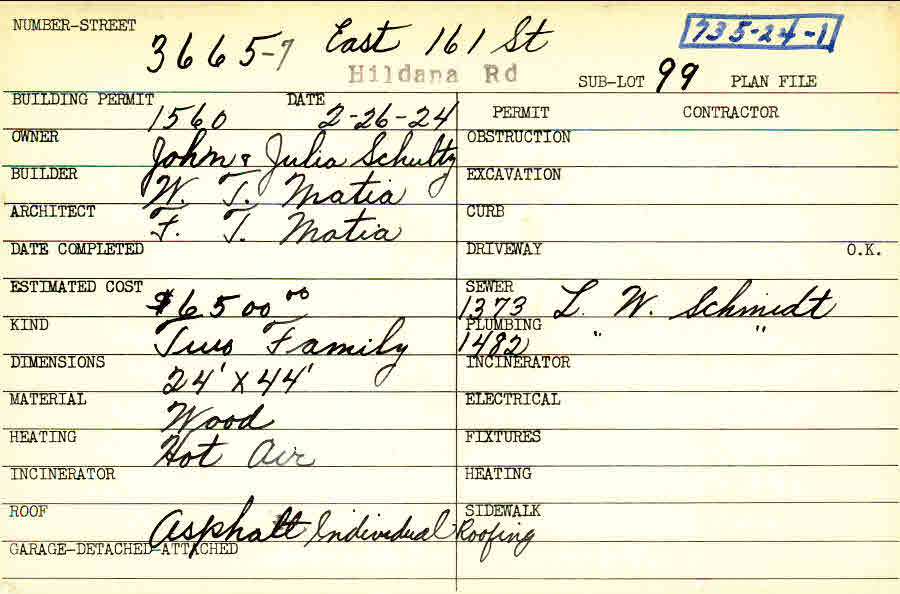 NUMBER-STREET 3665-7 East 161 St 735-24-1
Hildana Rd SUB-LOT 99 PLAN FILE
BUILDING PERMIT 1560 DATE 2-26-24 PERMIT CONTRACTOR
OWNER John & Julia Schultz OBSTRUCTION
BUILDER W. T. Matia EXCAVATION
ARCHITECT F. T. Matia CURB
DATE COMPLETED DRIVEWAY O.K.
ESTIMATED COST $6500.00 SEWER 1373 L. W. Schmidt
KIND Two Family PLUMBING 1482 " "
DIMENSIONS 24' x 44' INCINERATOR
MATERIAL Wood ELECTRICAL
HEATING Hot Air FIXTURES
INCINERATOR HEATING
ROOF Asphalt Individual Roofing SIDEWALK
GARAGE-DETACHED-ATTACHED